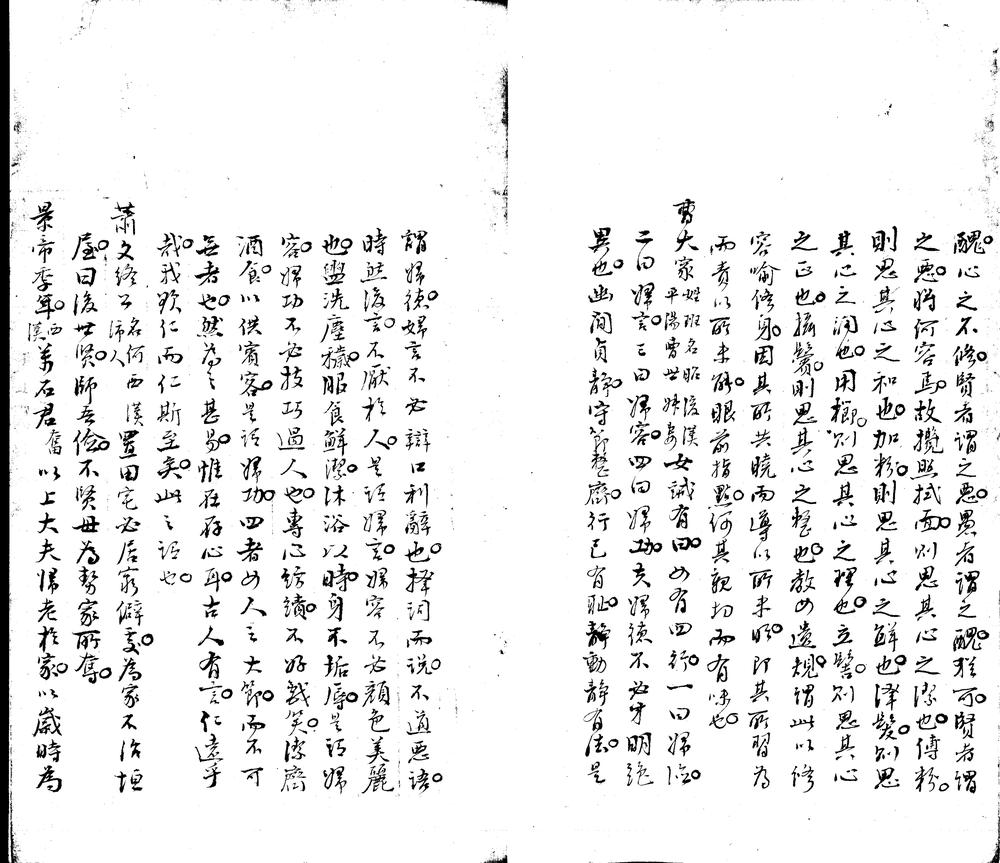 醜心之不修賢者謂之惡愚者謂之醜猶可賢者謂
之惡將何容焉故攬照拭面則思其心之潔也傅粉
則思其心之和也加粉則思其心之鮮也澤髮則思
其心之潤也用櫛則思其心之理也立髻則思其心
之正也攝鬢則思其心之整也教女遺規謂此以修
容喻修身因其所共曉而導以所未明即其所習為
而責以所未能眼前指點何其親切而有味也
曹大家姓班名昭後漢平陽曹世妻女誡有曰女有四行一曰婦德
二曰婦言三曰婦容四曰婦功夫婦德不必才明絕
異也幽間貞靜守節整齊行己有耻靜動靜有法是
謂婦德婦言不必辯口利辭也擇詞而说不道惡語
時然後言不厭於人是謂婦言婦容不必顏色美麗
也盥洗塵穢服飾鮮潔沐浴以時身不垢辱是謂婦
容婦功不必技巧過人也專心紡績不好戲笑潔齊
酒食以供賓客是謂婦功四者女人之大節而不可
無者也然為之甚易惟在存心耳古人有言仁遠乎
哉我欲仁而仁斯至矣此之謂也
蕭文終公名何西漢沛人置田宅必居窮僻處為家不治垣
屋曰後世賢師吾儉不賢毋為勢家所奪
景帝季年西漢萬石君奮以上大夫歸老於家以歲時為